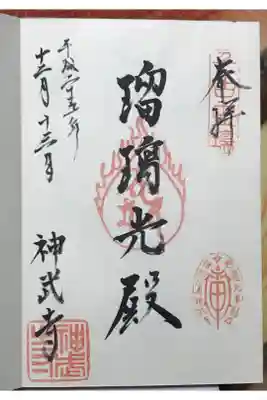 奉拝
瑠璃光殿
平成二十五年
十二月十三日
神武寺